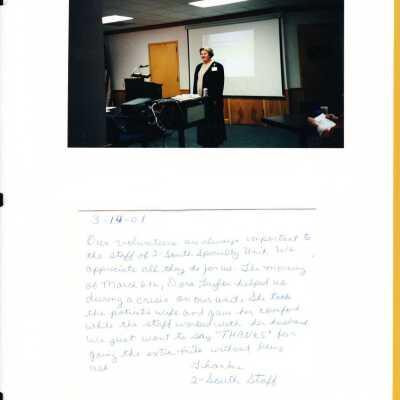 3-14-01
Our volunteers are always important to
the staff of 2-South Specialty Unit. We
appreciate all they do for us. The morning
of March 6th, Dora Taylor helped us
during a crisis on our unit. She took
the patients wife and gave her comfort
while the staff worked with her husband
We just want to say "THANKS" for
going the extra mile without being
ask
Thanks
2-South Staff